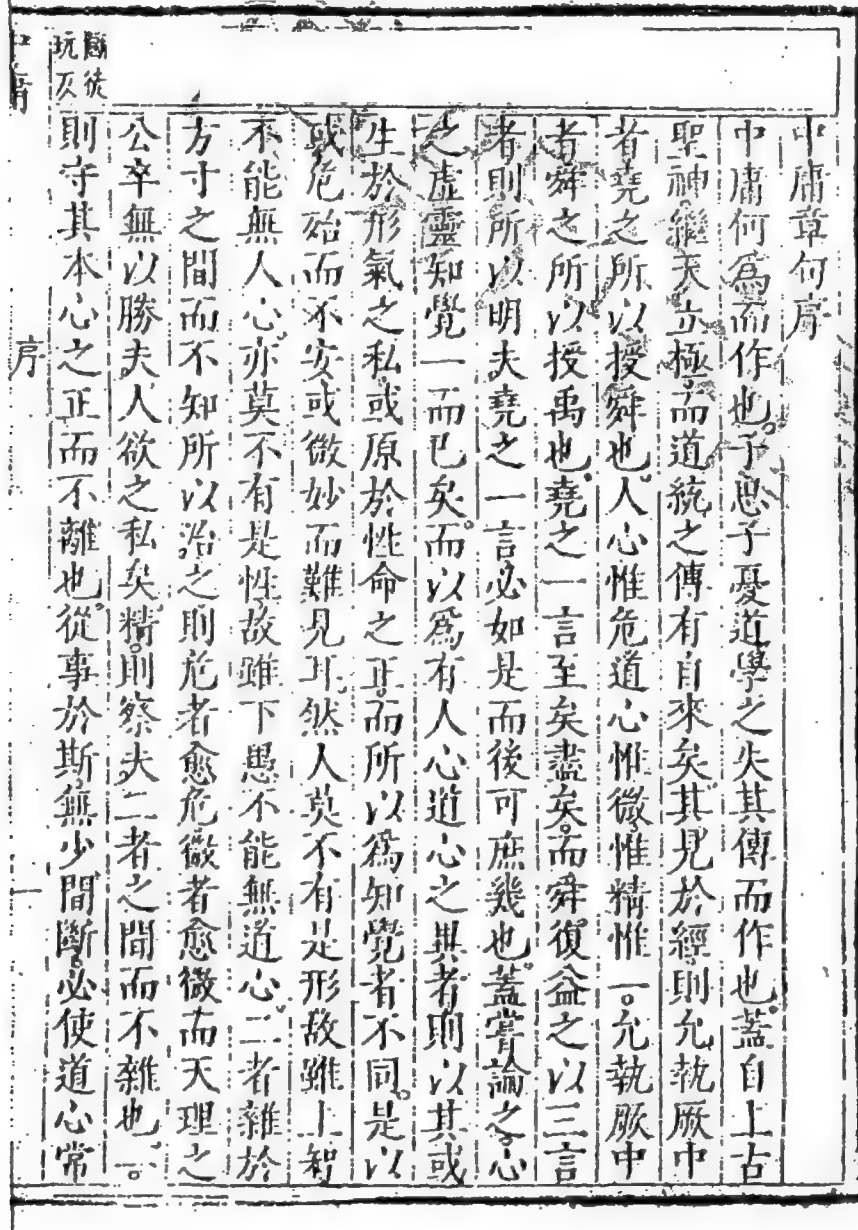 中庸章句序
中庸何為而作也子思子憂道學之失其傳而作也蓋自上古
聖神繼天立極而道統之傳有自來矣其見於經則允執厥中
者堯之所以授舜也人心惟危道心惟微惟精惟一允執厥中
者舜之所以授禹也堯之一言至矣盡矣而舜復益之以三言
者則所以明夫堯之一言必如是而後可庶幾也蓋嘗論之心
之虛靈知覺一而已矣而以爲有人心道心之異者則以其或
生於形氣之私或原於性命之正而所以爲知覺者不同是以
或危殆而不安或微妙而難見耳然人莫不有是形故雖上智
不能無人心亦莫不有是性故雖下愚不能無道心二者雜於
方寸之間而不知所以治之則危者愈危微者愈微而天理之
公卒無以勝夫人欲之私矣精則察夫二者之間而不雜也一
則守其本心之正而不離也從事於斯無少間斷必使道心常
中庸
序
一